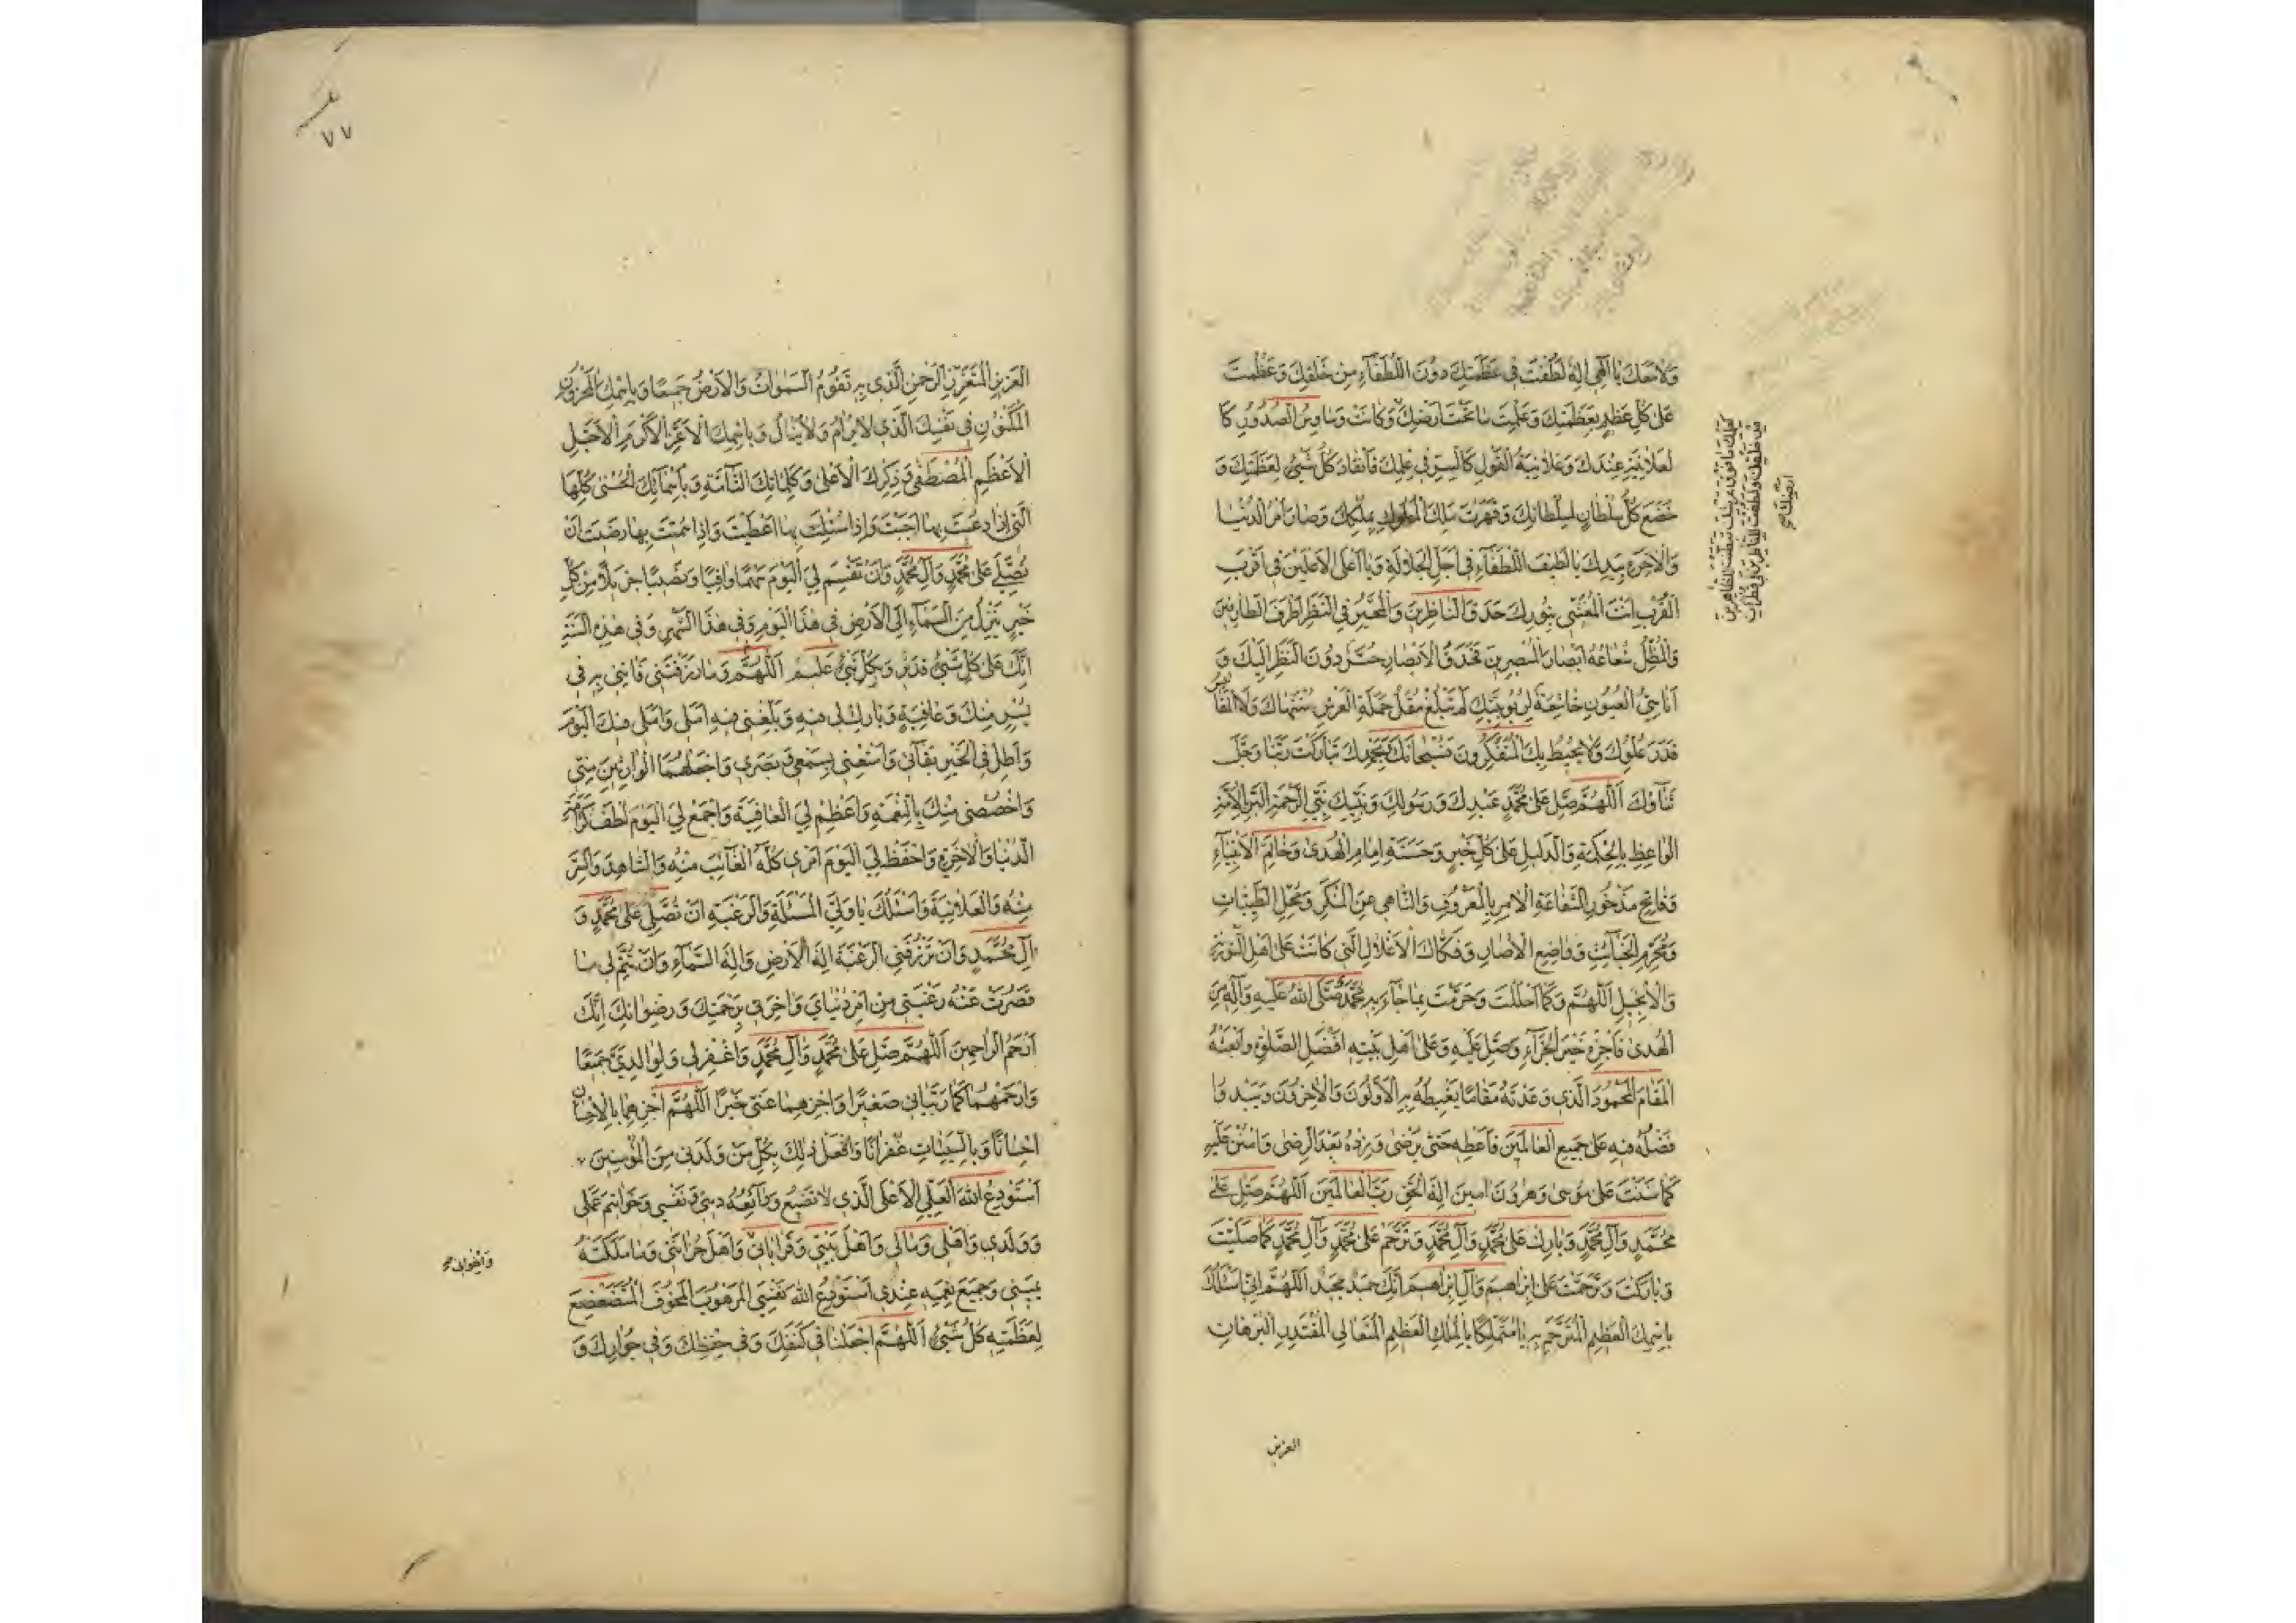 وَلَاضِحَكَ يَا اِلٰهِى اِلٰهُ لَطُفْتَ فِى عَظَمَتِكَ دُونَ اللُّطَفَآءِ مِنْ خَلْقِكَ وَعَظُمْتَ
عَلٰى كُلِّ عَظِيمٍ بِعَظَمَتِكَ وَعَلِمْتَ مَا تَحْتَ اَرْضِكَ وَكَانَتْ وَسَاوِسُ الصُّدُورِ كَا
لْعَلَانِيَةِ عِنْدَكَ وَعَلَانِيَةُ الْقَوْلِ كَالسِّرِّ فِى عِلْمِكَ فَانْقَادَ كُلُّ شَىْءٍ لِعَظَمَتِكَ وَ
خَضَعَ كُلُّ سُلْطَانٍ لِسُلْطَانِكَ وَقَهَرْتَ مُلْكَ الْمُلُوكِ بِمُلْكِكَ وَصَارَ اَمْرُ الدُّنْيَا
وَالْاٰخِرَةِ بِيَدِكَ يَا لَطِيفَ اللُّطَفَآءِ فِى اَجَلِّ الْجَلَالَةِ وَيَا اَعْلَى الْاَعْلَيْنَ فِى اَقْرَبِ
الْقُرْبِ اَنْتَ الْمُغَشِّى بِنُورِكَ حَدَقَ النَّاظِرِينَ وَالْمُحَيِّرُ فِى النَّظَرِ اَطْرَفَ الطَّارِفِينَ
وَالْمُظِلُّ شُعَاعُهُ اَبْصَارَ الْمُبْصِرِينَ فَحَدَقُ الْاَبْصَارِ حُسَّرٌ دُونَ النَّظَرِ اِلَيْكَ وَ
اَنَاسِىُّ الْعُيُونِ خَاشِعَةٌ لِرُبُوبِيَّتِكَ لَمْ تَبْلُغْ مُقَلُ حَمَلَةِ الْعَرْشِ مُنْتَهَاكَ وَلَا الْمَقَايِيسُ
قَدْرَ عُلُوِّكَ وَلَا يُحِيطُ بِكَ الْمُتَفَكِّرُونَ فَسُبْحَانَكَ وَبِحَمْدِكَ تَبَارَكْتَ رَبَّنَا وَجَلَّ
ثَنَآؤُكَ اَللّٰهُمَّ صَلِّ عَلٰى مُحَمَّدٍ عَبْدِكَ وَرَسُولِكَ وَنَبِيِّكَ نَبِىِّ الرَّحْمَةِ الْبَرِّ بِالْاُمَّةِ
الْوَاعِظِ بِالْحِكْمَةِ وَالدَّلِيلِ عَلٰى كُلِّ خَيْرٍ وَحَسَنَةٍ اِمَامِ الْهُدٰى وَخَاتَمِ الْاَنْبِيَآءِ
وَفَاتِحِ مَذْخُورِ الشَّفَاعَةِ الْاٰمِرِ بِالْمَعْرُوفِ وَالنَّاهِى عَنِ الْمُنْكَرِ وَمُحِلِّ الطَّيِّبَاتِ
وَمُحَرِّمِ الْخَبَآئِثِ وَوَاضِعِ الْاٰصَارِ وَفَكَّاكِ الْاَغْلَالِ الَّتِى كَانَتْ عَلٰى اَهْلِ التَّوْرٰيةِ
وَالْاِنْجِيلِ اَللّٰهُمَّ وَكَمَا اَحْلَلْتَ وَحَرَّمْتَ بِمَا جَآءَ بِهِ مُحَمَّدٌ صَلَّى اللّٰهُ عَلَيْهِ وَاٰلِهِ مِنَ
الْهُدٰى فَاَجْزِهِ خَيْرَ الْجَزَآءِ وَصَلِّ عَلَيْهِ وَعَلٰى اَهْلِ بَيْتِهِ اَفْضَلَ الصَّلٰوةِ وَابْعَثْهُ
الْمَقَامَ الْمَحْمُودَ الَّذِى وَعَدْتَهُ مَقَامًا يَغْبِطُهُ بِهِ الْاَوَّلُونَ وَالْاٰخِرُونَ وَيَبْدُو
فَضْلُهُ فِيهِ عَلٰى جَمِيعِ الْعَالَمِينَ فَاَعْطِهِ حَتّٰى يَرْضٰى وَزِدْهُ بَعْدَ الرِّضٰى وَامْنُنْ عَلَيْهِ
كَمَا مَنَنْتَ عَلٰى مُوسٰى وَهٰرُونَ اٰمِينَ اِلٰهَ الْحَقِّ رَبَّ الْعَالَمِينَ اَللّٰهُمَّ صَلِّ عَلٰى
مُحَمَّدٍ وَاٰلِ مُحَمَّدٍ وَبَارِكْ عَلٰى مُحَمَّدٍ وَاٰلِ مُحَمَّدٍ وَتَرَحَّمْ عَلٰى مُحَمَّدٍ وَاٰلِ مُحَمَّدٍ كَمَا صَلَّيْتَ
وَبَارَكْتَ وَتَرَحَّمْتَ عَلٰى اِبْرَاهِيمَ وَاٰلِ اِبْرَاهِيمَ اِنَّكَ حَمِيدٌ مَجِيدٌ اَللّٰهُمَّ اِنِّى اَسْئَلُكَ
بِاسْمِكَ الْعَظِيمِ الْمُتَرَحَّمِ بِهِ يَا مُتَمَلِّكًا بِالْمُلْكِ الْعَظِيمِ الْمُتَعَالِى الْمُقْتَدِرِ الْبُرْهَانِ
العزيز
كَعِلْمِكَ مَا فَوْقَ عَرْشِكَ بَطَنْتَ لِلظَّاهِرِينَ
مِنْ خَلْقِكَ وَلَطُفْتَ لِلنَّاظِرِينَ فِى قَطَرَاتِ
اَرْضِكَ صح
٧٧
الْعَزِيزِ الْمُتَعَزِّزِ الرَّحْمٰنِ الَّذِى بِهِ تَقُومُ السَّمٰوَاتُ وَالْاَرْضُ جَمِيعًا وَبِاسْمِكَ الْمَخْزُونِ
الْمَكْنُونِ فِى نَفْسِكَ الَّذِى لَا يُرَامُ وَلَا يُنَالُ وَبِاسْمِكَ الْاَعَزِّ الْاَكْرَمِ الْاَجَلِّ
الْاَعْظَمِ الْمُصْطَفٰى وَذِكْرِكَ الْاَعْلٰى وَكَلِمَاتِكَ التَّآمَّةِ وَبِاَسْمَآئِكَ الْحُسْنٰى كُلِّهَا
الَّتِى اِذَا دُعِيتَ بِهَا اَجَبْتَ وَاِذَا سُئِلْتَ بِهَا اَعْطَيْتَ وَاِذَا سُمِّيتَ بِهَا رَضِيتَ اَنْ
تُصَلِّىَ عَلٰى مُحَمَّدٍ وَاٰلِ مُحَمَّدٍ وَاَنْ تَقْسِمَ لِىَ الْيَوْمَ سَهْمًا وَافِيًا وَنَصِيبًا جَزِيلًا مِنْ كُلِّ
خَيْرٍ يَنْزِلُ مِنَ السَّمَآءِ اِلَى الْاَرْضِ فِى هٰذَا الْيَوْمِ وَفِى هٰذَا الشَّهْرِ وَفِى هٰذِهِ السَّنَةِ
اِنَّكَ عَلٰى كُلِّ شَىْءٍ قَدِيرٌ وَبِكُلِّ شَىْءٍ عَلِيمٌ اَللّٰهُمَّ وَمَا رَزَقْتَنِى فَاْتِنِى بِهِ فِى
يُسْرٍ مِنْكَ وَعَافِيَةٍ وَبَارِكْ لِى فِيهِ وَبَلِّغْنِى فِيهِ اَمَلِى وَاَمَلِى فِيكَ الْيَوْمَ
وَاَطِلْ فِى الْخَيْرِ بَقَآئِى وَاَمْتِعْنِى بِسَمْعِى وَبَصَرِى وَاجْعَلْهُمَا الْوَارِثَيْنِ مِنِّى
وَاخْصُصْنِى مِنْكَ بِالنِّعْمَةِ وَاَعْظِمْ لِىَ الْعَافِيَةَ وَاجْمَعْ لِىَ الْيَوْمَ لُطْفَ كَرَامَةِ
الدُّنْيَا وَالْاٰخِرَةِ وَاحْفَظْ لِىَ الْيَوْمَ اَمْرِى كُلَّهُ الْغَآئِبَ مِنْهُ وَالشَّاهِدَ وَالسِّرَّ
مِنْهُ وَالْعَلَانِيَةَ وَاَسْئَلُكَ يَا وَلِىَّ الْمَسْئَلَةِ وَالرَّغْبَةِ اَنْ تُصَلِّىَ عَلٰى مُحَمَّدٍ وَ
اٰلِ مُحَمَّدٍ وَاَنْ تَرْزُقَنِى الرَّغْبَةَ اِلٰهَ الْاَرْضِ وَاِلٰهَ السَّمَآءِ وَاَنْ تُتِمَّ لِى مَا
قَصُرَتْ عَنْهُ رَغْبَتِى مِنْ اَمْرِ دُنْيَاىَ وَاٰخِرَتِى بِرَحْمَتِكَ وَرِضْوَانِكَ اِنَّكَ
اَرْحَمُ الرَّاحِمِينَ اَللّٰهُمَّ صَلِّ عَلٰى مُحَمَّدٍ وَاٰلِ مُحَمَّدٍ وَاغْفِرْ لِى وَلِوَالِدَىَّ جَمِيعًا
وَارْحَمْهُمَا كَمَا رَبَّيَانِى صَغِيرًا وَاجْزِهِمَا عَنِّى خَيْرًا اَللّٰهُمَّ اجْزِهِمَا بِالْاِحْسَانِ
اِحْسَانًا وَبِالسَّيِّئَاتِ غُفْرَانًا وَافْعَلْ ذٰلِكَ بِكُلِّ مَنْ وَلَدَنِى مِنَ الْمُؤْمِنِينَ
اَسْتَوْدِعُ اللّٰهَ الْعَلِىَّ الْاَعْلَى الَّذِى لَا تَضِيعُ وَدَآئِعُهُ دِينِى وَنَفْسِى وَخَوَاتِيمَ عَمَلِى
وَوَلَدِى وَاَهْلِى وَمَالِى وَاَهْلَ بَيْتِى وَقَرَابَاتِى وَاَهْلَ حُزَانَتِى وَمَا مَلَكَتْهُ
يَمِينِى وَجَمِيعَ نِعَمِهِ عِنْدِى اَسْتَوْدِعُ اللّٰهَ نَفْسِىَ الْمَرْهُوبَ الْمَخُوفَ الْمُتَضَعْضِعَ
لِعَظَمَتِهِ كُلُّ شَىْءٍ اَللّٰهُمَّ اجْعَلْنَا فِى كَنَفِكَ وَفِى حِفْظِكَ وَفِى جِوَارِكَ وَ
وَاِخْوَانِى صح